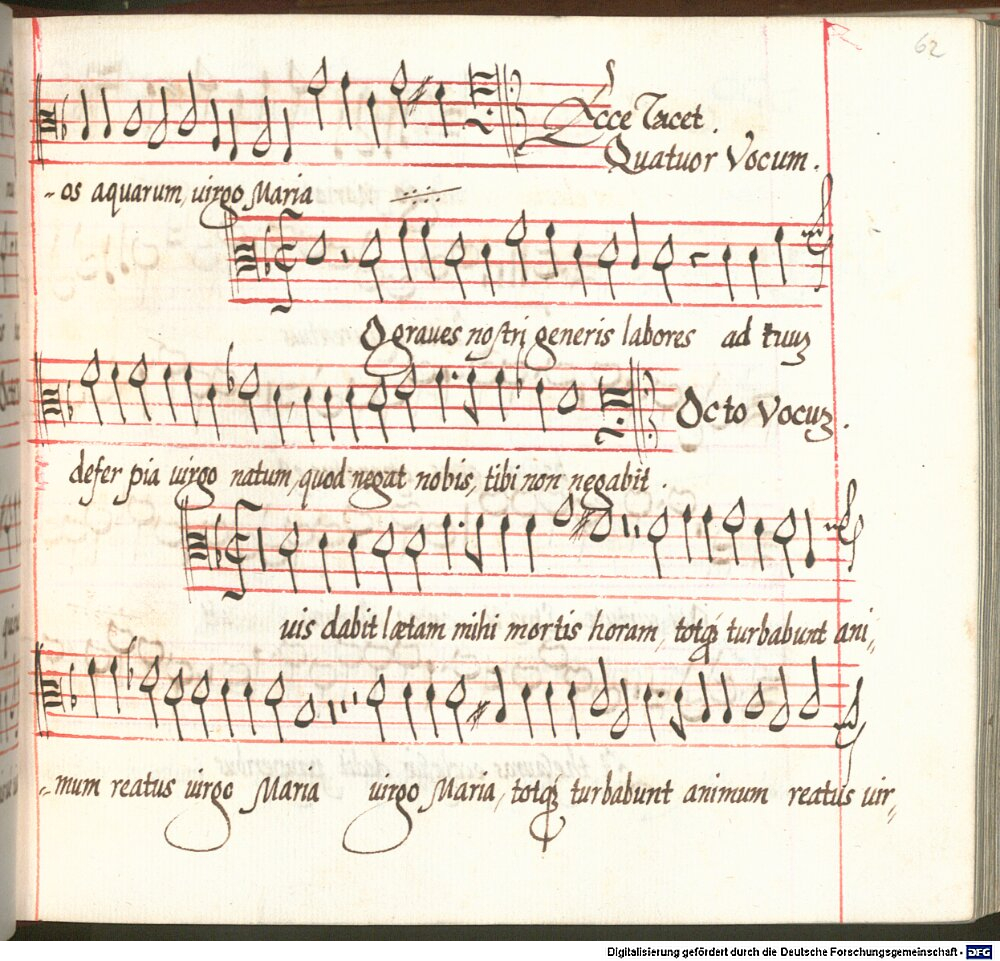 62
Ecce Tacet.
Quatuor Vocum.
-os aquarum, uirgo Maria
O graues nostri generis labores ad tuuȝ
defer pia uirgo natum, quod negat nobis, tibi non negabit.
Octo Vocuȝ.
uis dabit lætam mihi mortis horam, totqȝ turbabunt ani,,
,,mum reatus uirgo Maria uirgo Maria, totqȝ turbabunt animum reatus uir,,
Digitalisierung gefördert durch die Deutsche Forschungsgemeinschaft - DFG